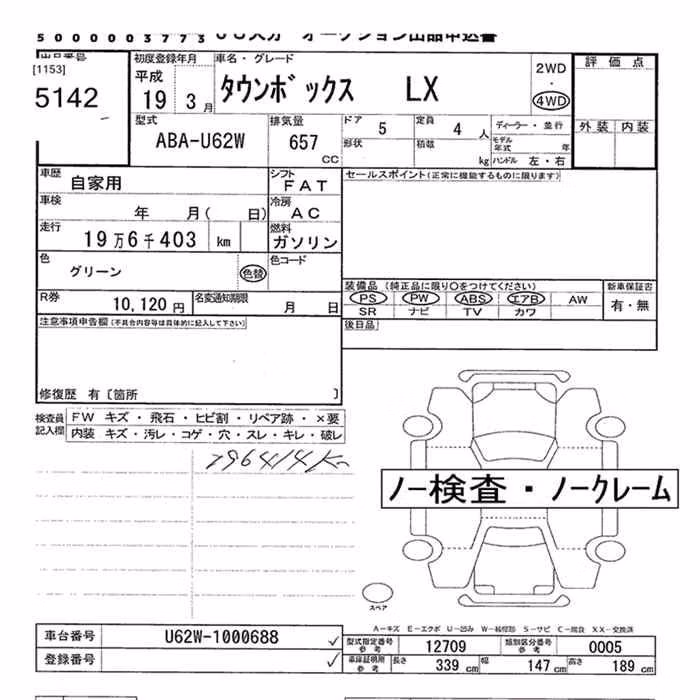 5 0 0 0 0 0 3 7 7 3
出品番号
[1153]
5142
初度登録年月
平成
19 3月
車名・グレード
タウンボックス LX
2WD
・
4WD
評価点
外装 内装
型式
ABA-U62W
排気量
657
CC
ドア 5
定員 4 人
ディーラー・並行
形状
積載 kg
モデル年式 年
ハンドル 左・右
車歴
自家用
シフト
FAT
セールスポイント(正常に機能するものに限ります)
車検
年 月( 日)
冷房
AC
走行
19万6千403 km
燃料
ガソリン
色
グリーン
色替
色コード
R券
10,120 円
名変通知期限
月 日
装備品 (純正品に限り○をつけてください)
PS PW ABS エアB AW
SR ナビ TV カワ
新車保証書
有・無
注意事項申告欄(不具合内容等は具体的に記入して下さい)
後日品
修復歴 有〔箇所 〕
検査員記入欄
FW キズ・飛石・ヒビ割・リペア跡・×要
内装 キズ・汚レ・コゲ・穴・スレ・キレ・破レ
196414K
ノー検査・ノークレーム
スペア
A－キズ E－エクボ U－凹み W－補修跡 S－サビ C－腐食 XX－交換済
車台番号 U62W-1000688
登録番号
型式指定番号 参考 12709
類別区分番号 参考 0005
車庫証明用 参考 長さ 339 cm 幅 147 cm 高さ 189 cm